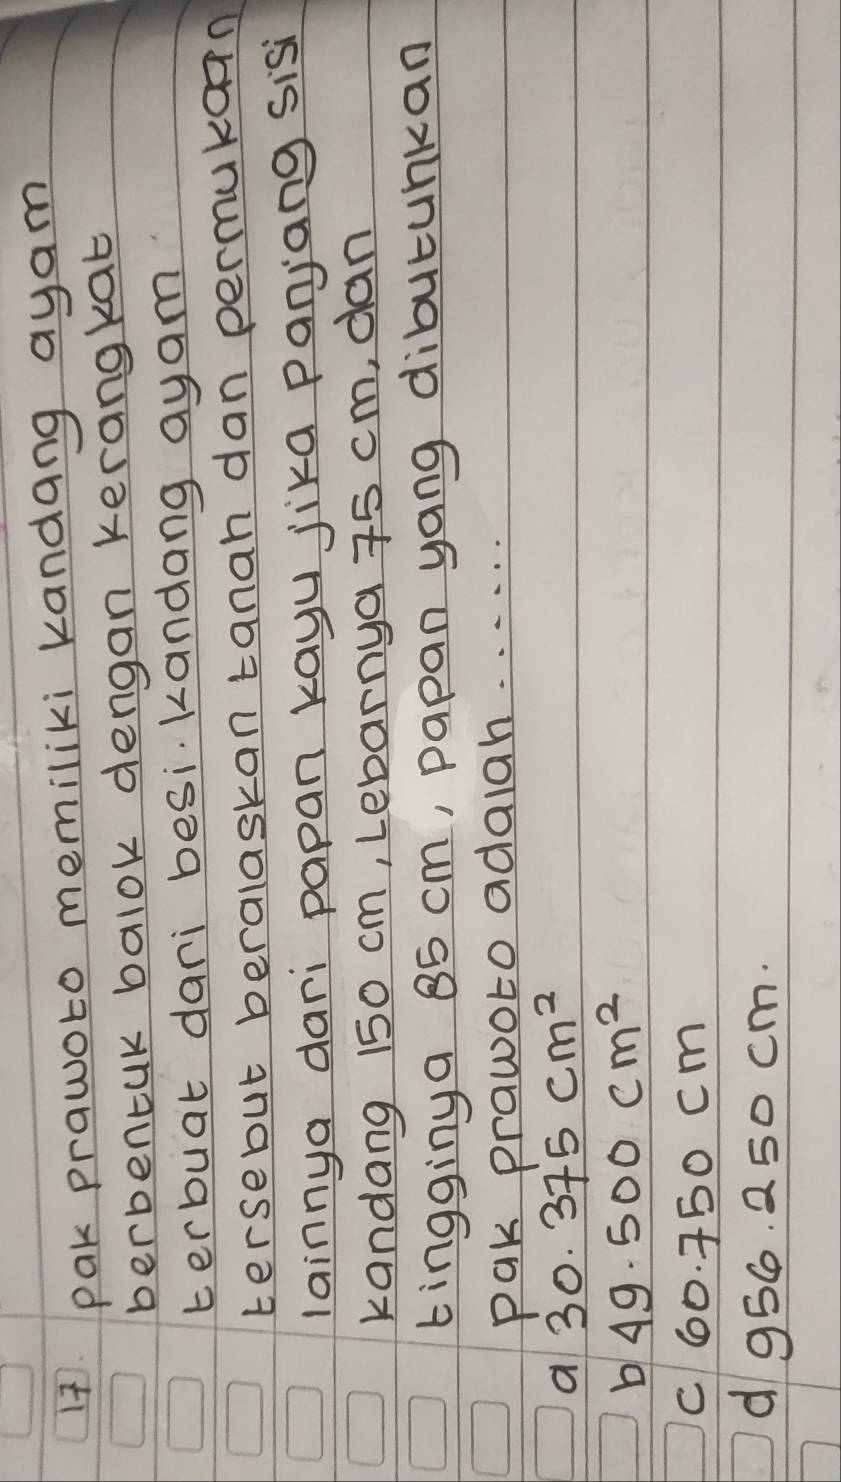 17. pak prawoto memiliki kandang ayam
berbentuk balok dengan kerangkat
terbuat dari besi. kandang ayam
tersebut beralaskan tanah dan permukaan
lainnya dari papan kayu jika panjang sisi
kandang 150 cm, Lebarnya 75 cm, dan
tingginya 85 cm, papan yang dibutuhkan
pak prawoto adalah.......
a 30.375 cm²
b 49.500 cm²
c 60.750 cm
d 956.250 cm.